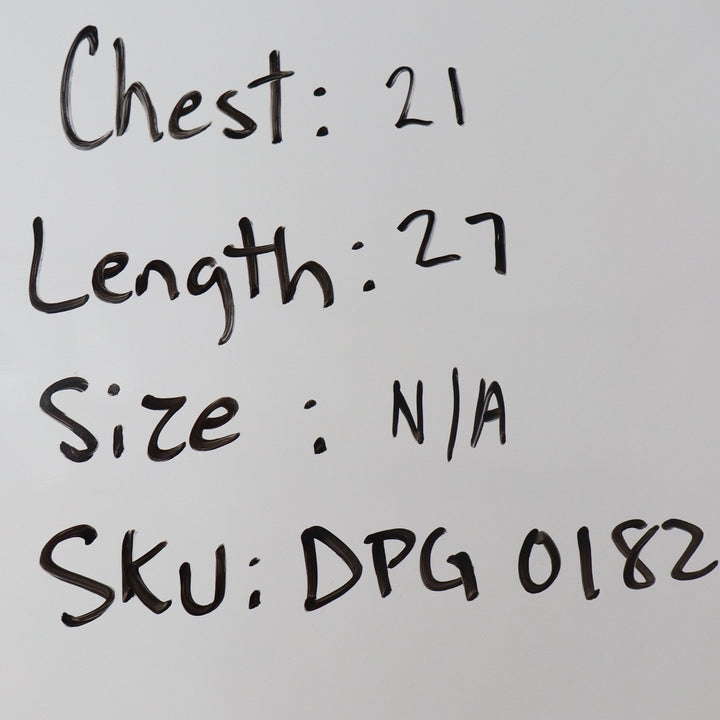 Chest: 21
Length: 27
Size: N/A
SKU: DPG 0182